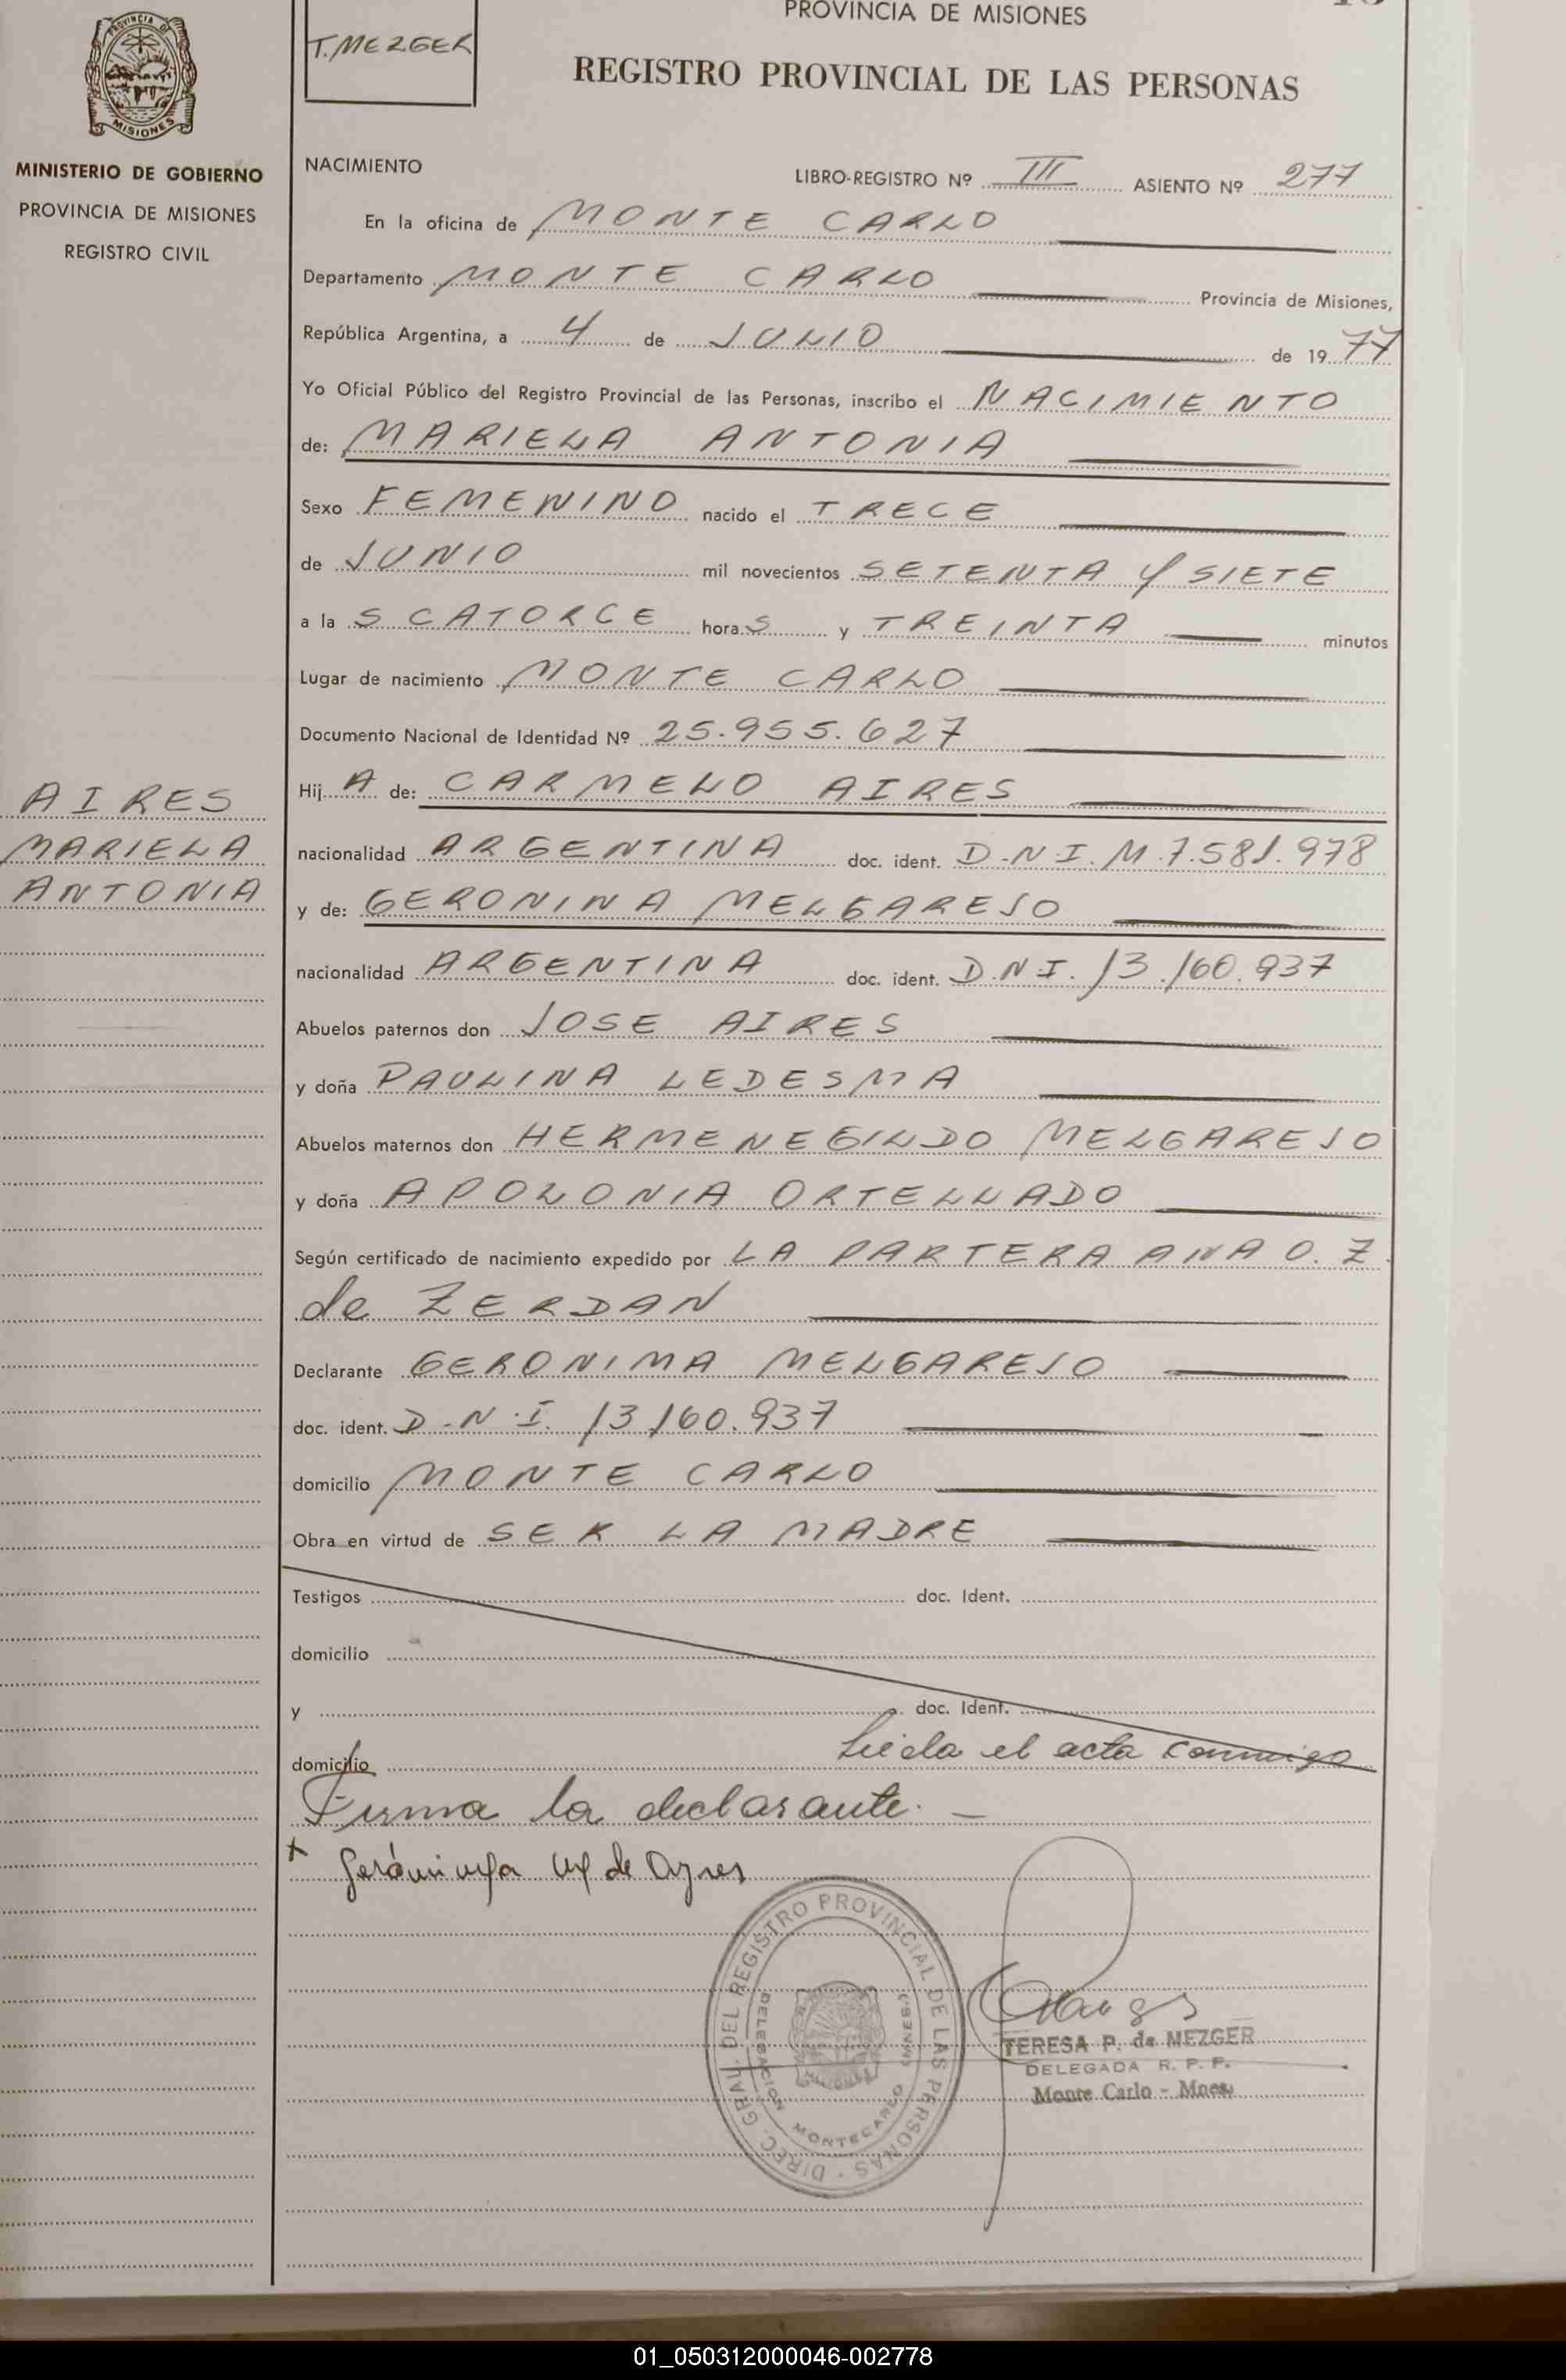 PROVINCIA DE MISIONES
T. MEZGER
REGISTRO PROVINCIAL DE LAS PERSONAS
PROVINCIA DE
MISIONES
MINISTERIO DE GOBIERNO
PROVINCIA DE MISIONES
REGISTRO CIVIL
NACIMIENTO
LIBRO-REGISTRO Nº III ASIENTO Nº 277
En la oficina de MONTE CARLO
Departamento MONTE CARLO Provincia de Misiones,
República Argentina, a 4 de JULIO de 1977
Yo Oficial Público del Registro Provincial de las Personas, inscribo el NACIMIENTO
de: MARIELA ANTONIA
Sexo FEMENINO nacido el TRECE
de JUNIO mil novecientos SETENTA Y SIETE
a la S CATORCE hora S y TREINTA minutos
Lugar de nacimiento MONTE CARLO
Documento Nacional de Identidad Nº 25.955.627
Hij A de: CARMELO AIRES
nacionalidad ARGENTINA doc. ident. D.N.I. M.7.581.978
y de: GERONINA MELGAREJO
nacionalidad ARGENTINA doc. ident. D.N.I. 13.160.937
Abuelos paternos don JOSE AIRES
y doña PAULINA LEDESMA
Abuelos maternos don HERMENEGILDO MELGAREJO
y doña APOLONIA ORTELLADO
Según certificado de nacimiento expedido por LA PARTERA ANA O. Z.
de ZERDAN
Declarante GERONIMA MELGAREJO
doc. ident. D.N.I. 13160.937
domicilio MONTE CARLO
Obra en virtud de SER LA MADRE
Testigos doc. Ident.
domicilio
y doc. Ident.
domicilio Leida el acta conmigo
Firma la declarante. —
AIRES
MARIELA
ANTONIA
DIREC. GRAL. DEL REGISTRO PROVINCIAL DE LAS PERSONAS
DELEGACION MONTECARLO (MNES)
TERESA P. de MEZGER
DELEGADA R. P. P.
Monte Carlo - Mnes.
01_050312000046-002778